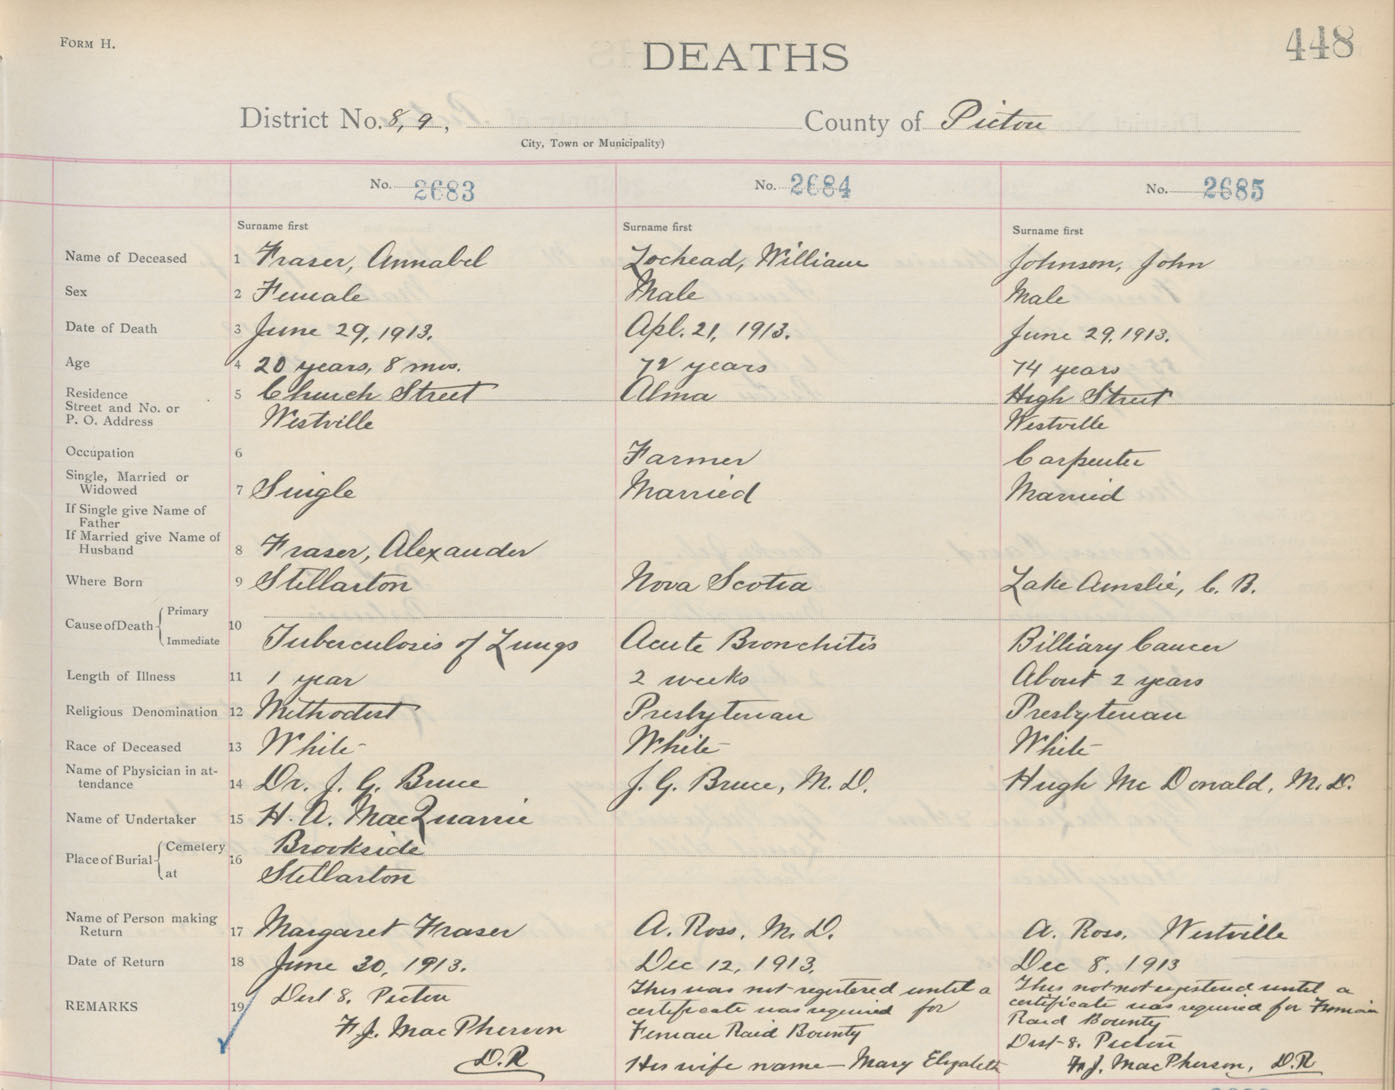 FORM H.
DEATHS
448
District No. 8, 9, County of Pictou
City, Town or Municipality)
No. 2683 No. 2684 No. 2685
Surname first Surname first Surname first
Name of Deceased 1 Fraser, Annabel Lochead, William Johnson, John
Sex 2 Female Male Male
Date of Death 3 June 29, 1913. Apl. 21, 1913. June 29, 1913.
Age 4 20 years, 8 mos. 72 years 74 years
Residence 5 Church Street Alma High Street
Street and No. or
P. O. Address Westville Westville
Occupation 6 Farmer Carpenter
Single, Married or
Widowed 7 Single Married Married
If Single give Name of
Father
If Married give Name of
Husband 8 Fraser, Alexander
Where Born 9 Stellarton Nova Scotia Lake Ainslie, C. B.
Cause of Death Primary
10
Immediate Tuberculosis of Lungs Acute Bronchitis Billiary Cancer
Length of Illness 11 1 year 2 weeks About 2 years
Religious Denomination 12 Methodist Presbyterian Presbyterian
Race of Deceased 13 White White White
Name of Physician in at-
tendance 14 Dr. J. G. Bruce J. G. Bruce, M. D. Hugh Mc Donald, M. D.
Name of Undertaker 15 H. A. MacQuarrie
Place of Burial Cemetery 16 Brookside
at Stellarton
Name of Person making
Return 17 Margaret Fraser A. Ross, M. D. A. Ross, Westville
Date of Return 18 June 30, 1913. Dec 12, 1913. Dec 8, 1913
REMARKS 19 Dist 8. Pictou This was not registered until a This not not registered until a
certificate was required for certificate was required for
F. J. MacPherson Fenian Raid Bounty Raid Bounty
Dist-8. Pictou
D.R His wife name — Mary Elizabeth F. J. MacPherson, D.R